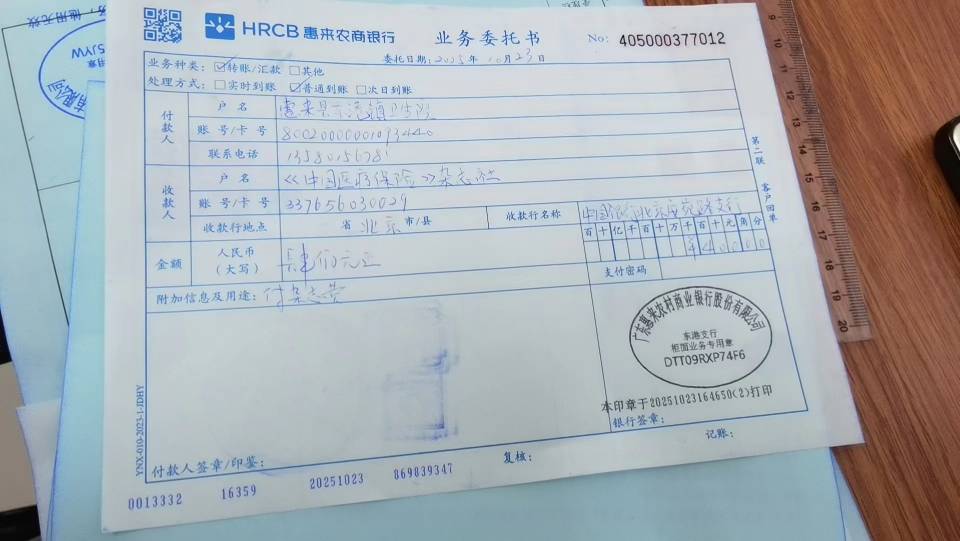 HRCB 惠来农商银行
业务委托书
No: 405000377012
委托日期: 2025年10月23日
业务种类: ☑转账/汇款 □其他
处理方式: □实时到账 ☑普通到账 □次日到账
付款人
户 名
惠来县东港镇卫生院
账 号/卡 号
联系电话
收款人
户 名
《中国医疗保险》杂志社
账 号/卡 号
337656030029
收款行地点
省 北京 市/县
收款行名称
中国银行北京安苑路支行
金额
人民币
(大写)
百十亿千百十万千百十元角分
¥44000
支付密码
附加信息及用途: 付杂志费
第二联 客户回单
广东惠来农村商业银行股份有限公司
东港支行
柜面业务专用章
DTT09RXP74F6
本印章于20251023164650(2)打印
银行签章:
付款人签章/印鉴:
复核:
记账:
0013332 16359 20251023 869839347
YNX-010-2023-1-JDHY